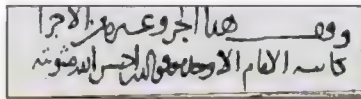 وقف هذا الجزو وغيره من الاجزا
كاتبه الامام الاوحد الله احسن الله مثوبته